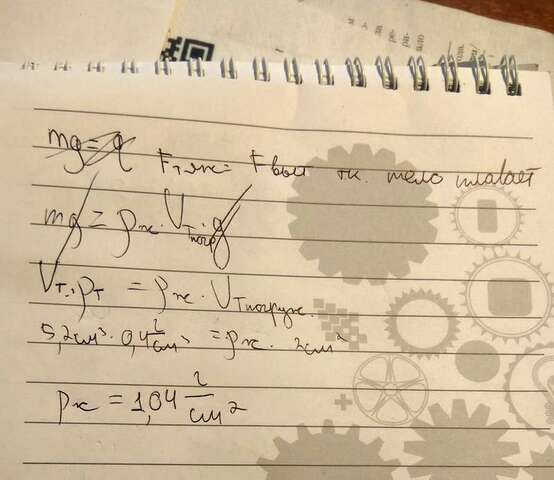 mg = q Fтяж = Fвыт т.к. тело плавает
mg = ρж · Vт погр g
Vт · ρт = ρж · Vт погруж.
5,2 см³ · 0,4 г/см³ = ρж · 2 см²
ρж = 1,04 г/см²